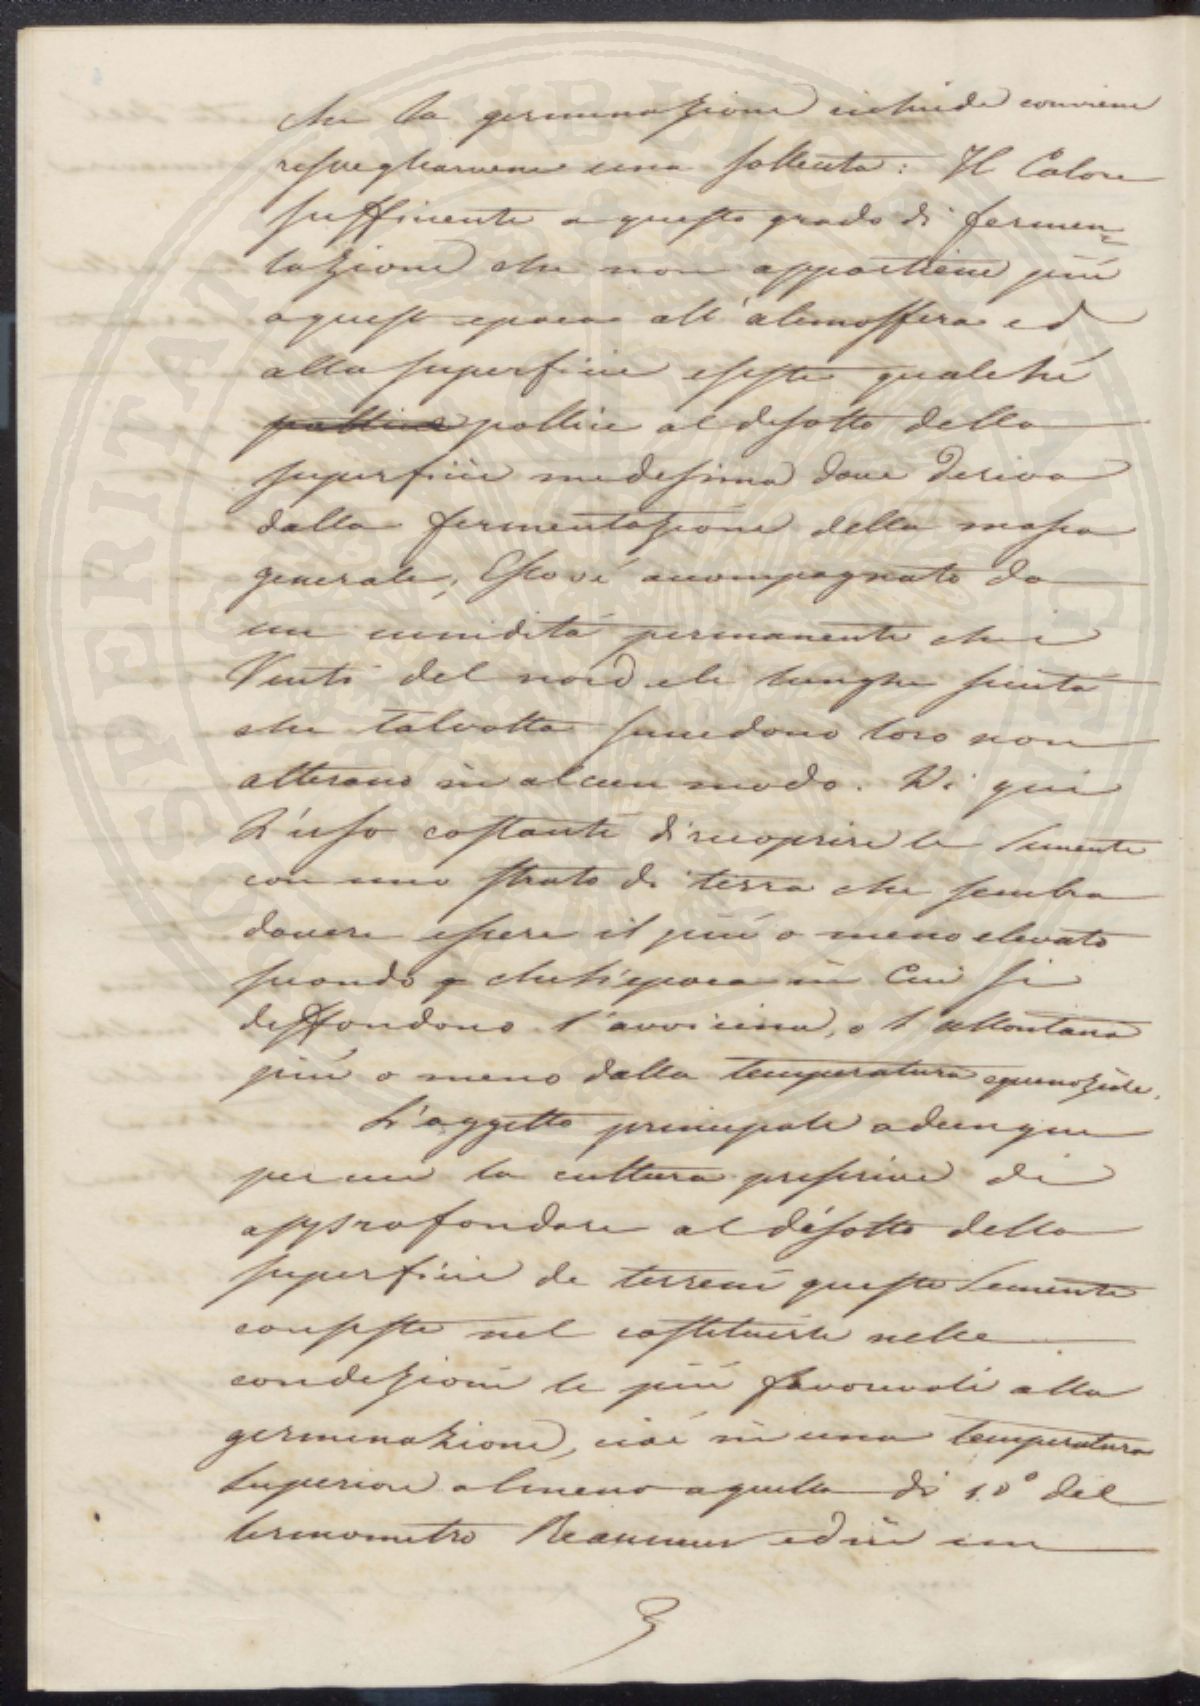 che la germinazione richiede conviene
risvegliarvene una sollecita: Il Calore
sufficiente a questo grado di fermen=
tazione che non appartiene più
a quest epoca all'atimosfera ed
alla superficie esiste qualché
pollice pollice al disotto della
superficie medesima dove deriva
dalla fermentazione della massa
generale, Esso vi é accompagnato da
un umidità permanente che i
Venti del nord ele lunghe siccità
che talvolta succedono loro non
alterano in alcun modo. Di qui
L'uso costante di ricoprire le Semente
con uno strato di terra che sembra
dovere essere il più o meno elevato
secondo che l'epoca in Cui si
diffondono l'avvicina, o l allontana
più o meno dalla temperatura equinoziale.
L'oggetto principale adunque
per cui la cultura prescrive di
approfondare al disotto della
superficie de terreni queste Semente
consiste nel costituirle nelle
condizioni le più favorevoli alla
germinazione, cioè in una temperatura
superiore almeno a quella di 10° del
termometro Reaumur ed in un
3